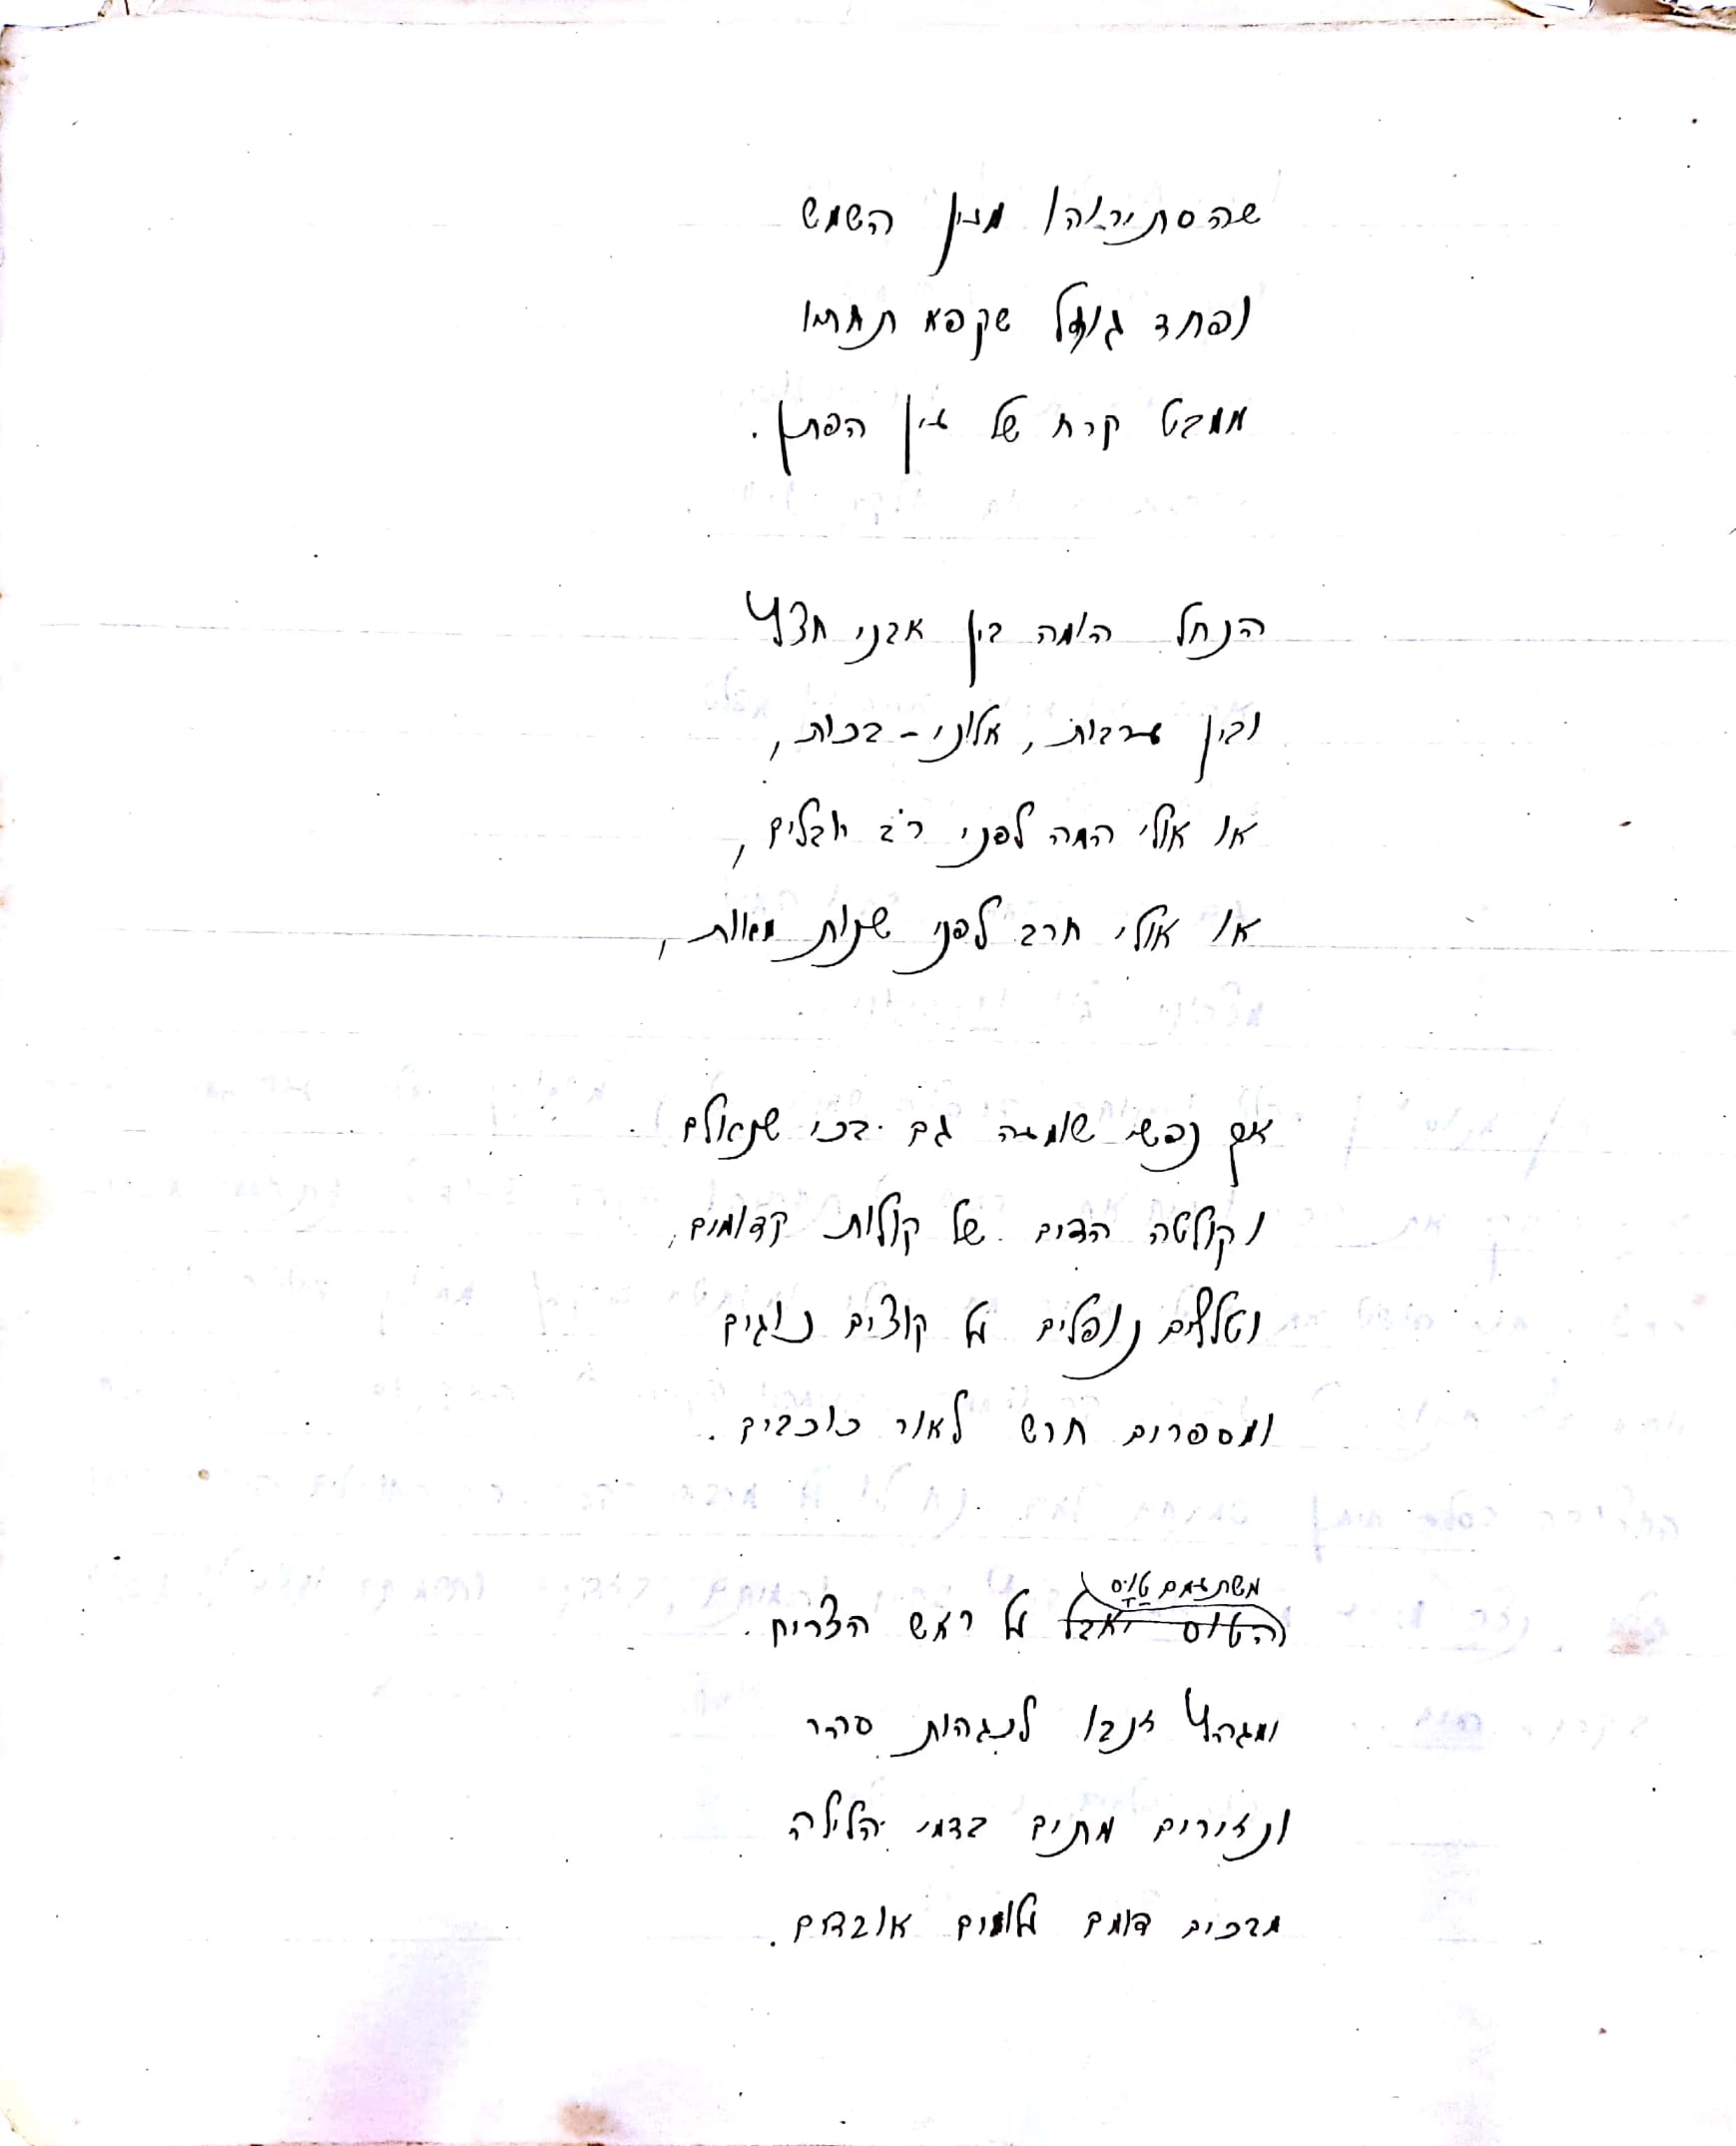 שהסתירוהו מעין השמש
ופחד גודל שקפא תחתיו
ממבט קרח של עין הפתן.
הנחל הומה בין אבני חצץ
ובין ערבות, אלוני-בכות,
או אולי המה לפני רב יובלים,
או אולי חרב לפני שנות מאות,
אך נפשי שומעה גם בכי שנאלם
וקולטה הדים של קולות קדומים,
וטללים נופלים על קוצים נוגים
ומספרים חרש לאור כוכבים.
משתעמם טוס
הטוס יאבל על ראש הצריח.
ומגהץ זנבו לנגהות סהר
ונזירים מתים בדמי הלילה
מבכים דומם עלומים אובדים.